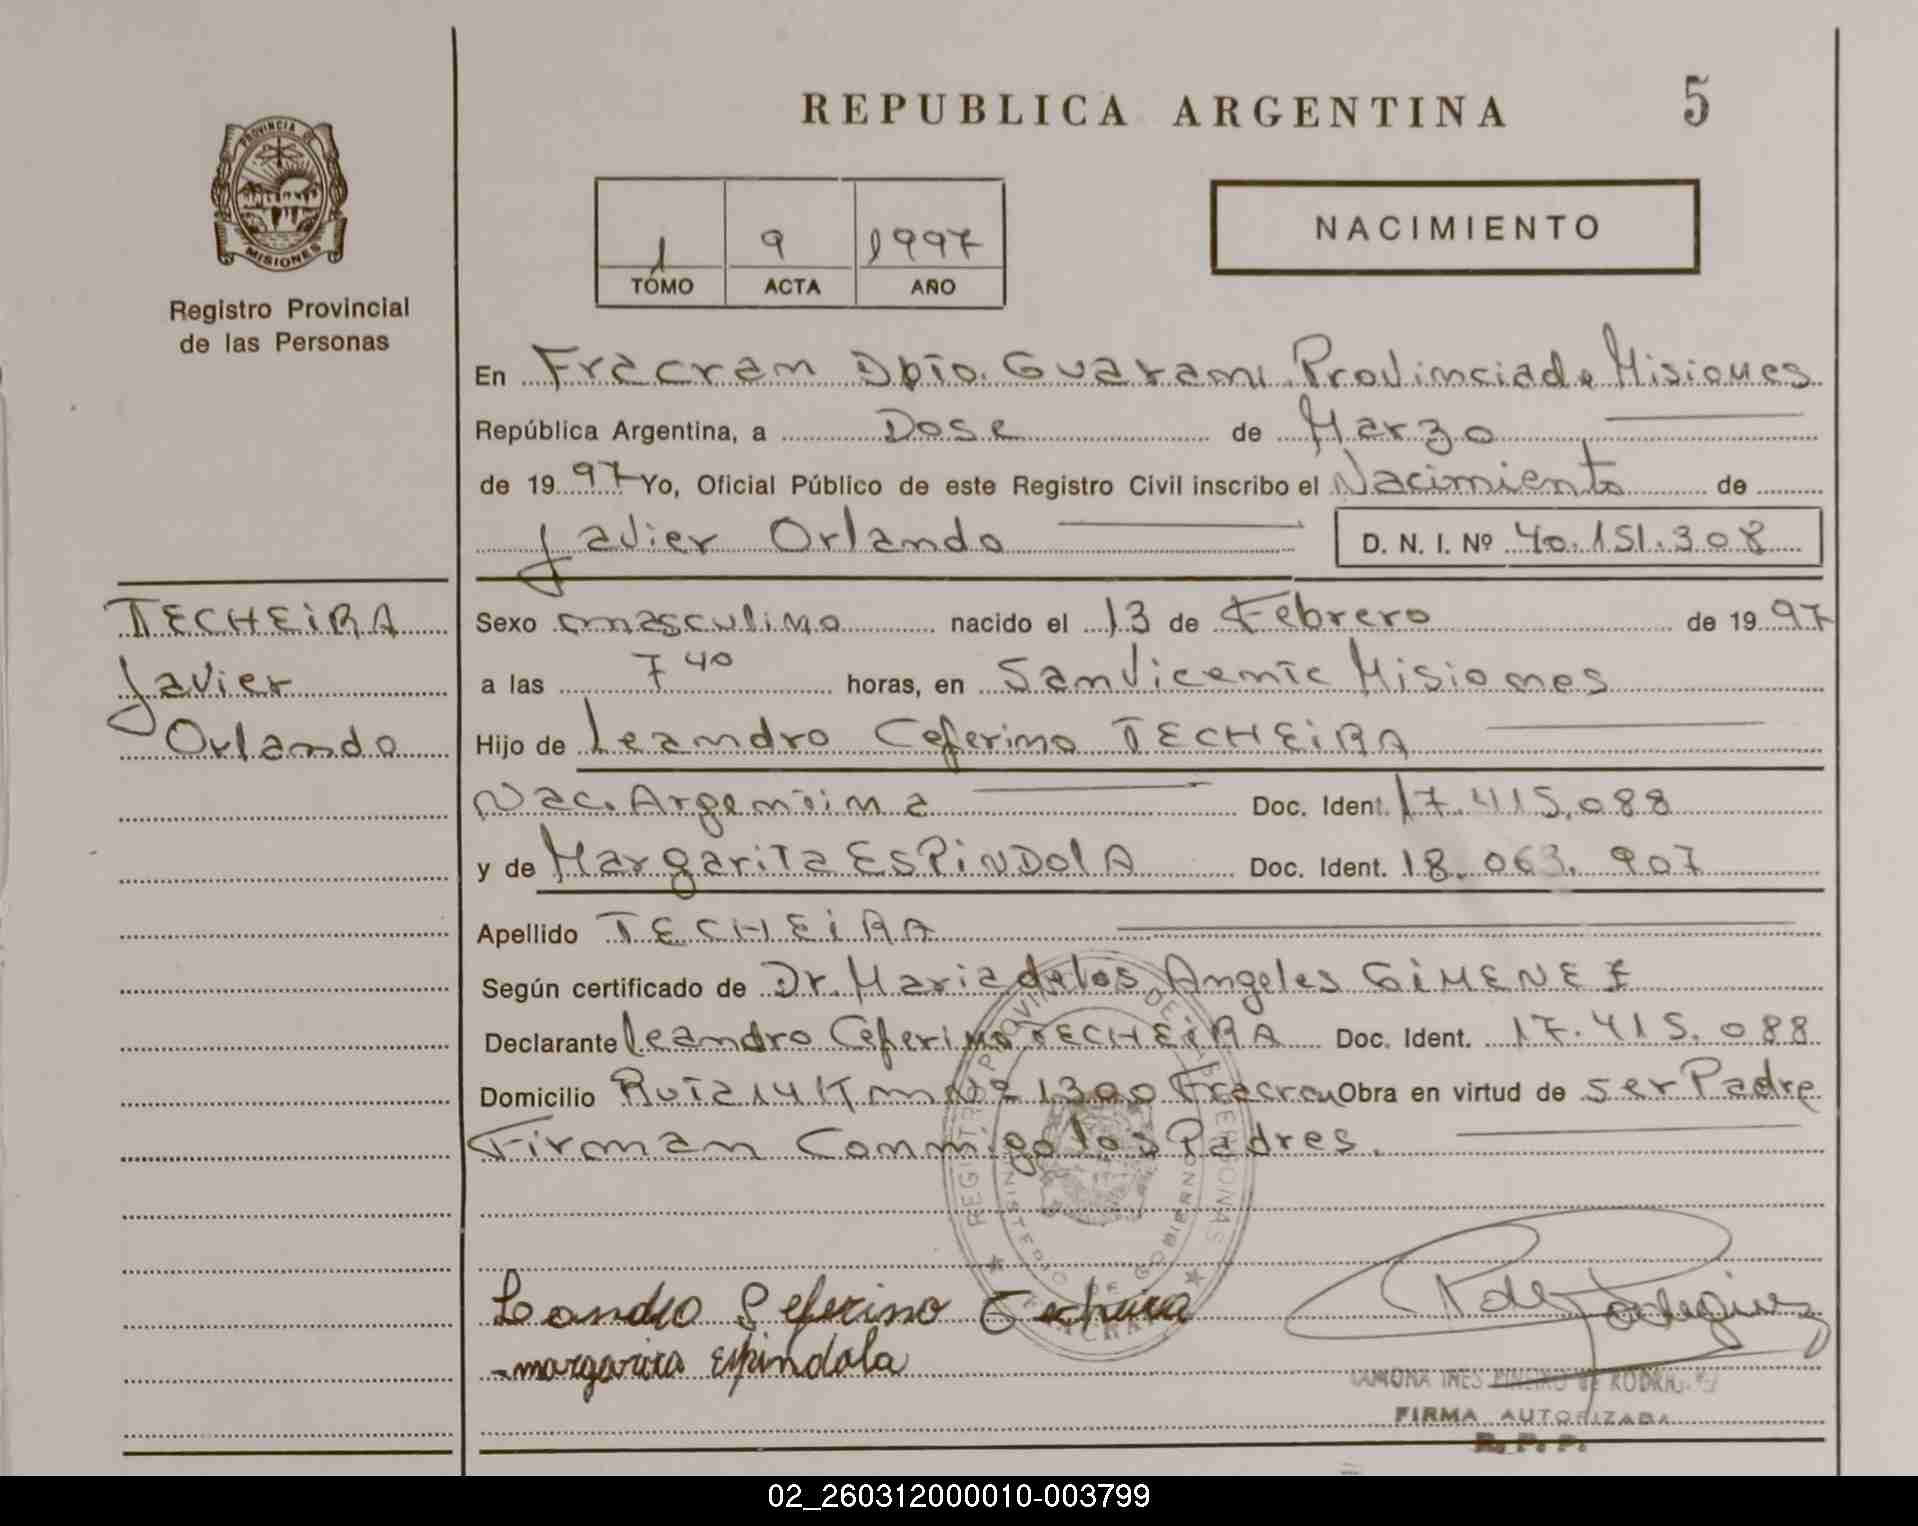 REPUBLICA ARGENTINA
5
PROVINCIA DE
MISIONES
Registro Provincial
de las Personas
1 9 1997
TOMO ACTA AÑO
NACIMIENTO
En Fracram Dpto. Guarani Provincia de Misiones
República Argentina, a Dose de Marzo
de 1997 Yo, Oficial Público de este Registro Civil inscribo el Nacimiento de
Javier Orlando D. N. I. Nº 40.151.308
TECHEiRA
Javier
Orlando
Sexo masculino nacido el 13 de Febrero de 1997
a las 7 40 horas, en San Vicente Misiones
Hijo de Leandro Ceferino TECHEiRA
Nac. Argentina Doc. Ident. 17.415.088
y de Margarita ESPiNDOlA Doc. Ident. 18.063.907
Apellido TECHEiRA
Según certificado de Dr. Maria de los Angeles GiMENEZ
Declarante Leandro Ceferino TECHEiRA Doc. Ident. 17.415.088
Domicilio Ruta 14 Km Nº 1300 Fracran Obra en virtud de ser Padre
Firman Conmigo los Padres.
REGISTRO PROVINCIAL DE LAS PERSONAS
MINISTERIO DE GOBIERNO
FRACRAN
Leandro Seferino Techeira
-margarita Espindola
RAMONA INES PIÑEIRO de RODRIGUEZ
FIRMA AUTORIZADA
R. P. P.
02_260312000010-003799